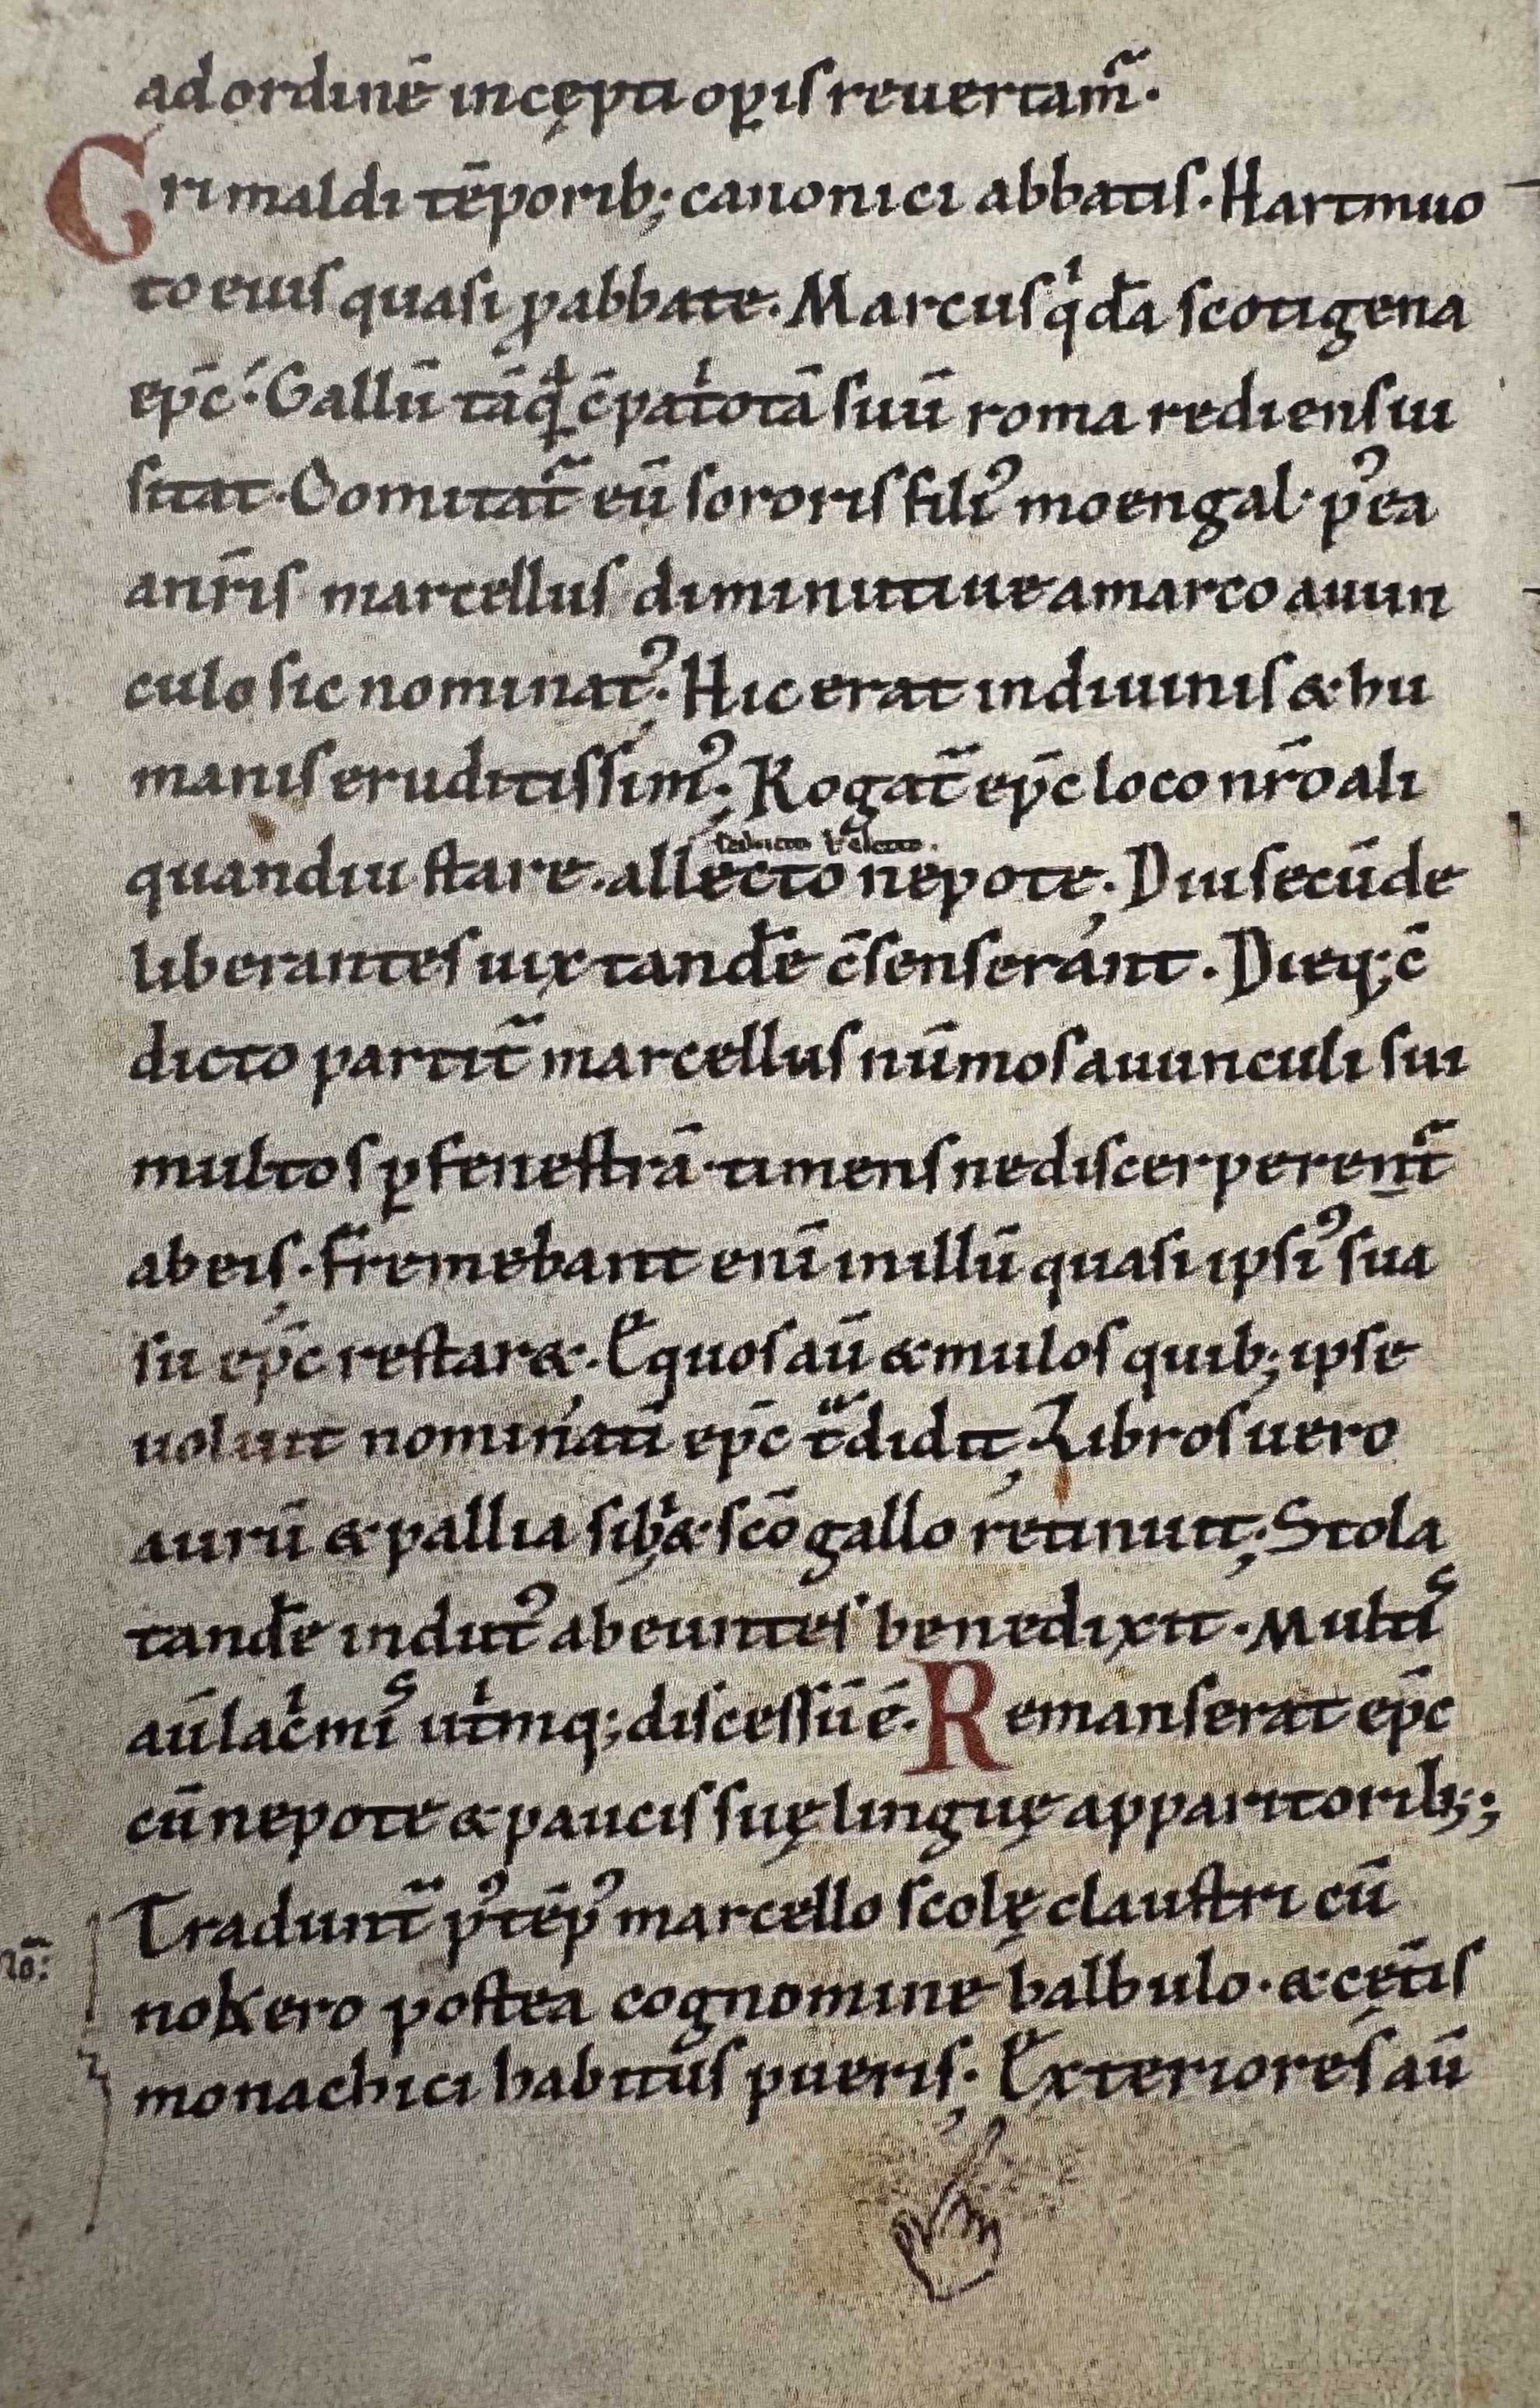 ad ordinē incępti oꝑis reuertam̃.
Grimaldi tēporib; canonici abbatis. Hartmuo
to eius quasi ꝓabbate. Marcus qͥdā scotigena
ep̄c. Gallū tāqᷓ c̄patͥotā suū roma rediens ui
sitat. Comitat̃ eū sororis filiꝰ moengal. pꝰea
anr̄is marcellus diminutiue a marco auun
culo sic nominatꝰ. Hic erat in diuinis & hu
manis eruditissimꝰ; Rogat̃ ep̄c loco nr̄o ali
quandiu stare. allecto nepote. Diu secū de
liberantes uix tandē c̄senserant. Dieq; c̄
dicto partit̃ marcellus nūmos auunculi sui
multos ꝑ fenestrā. timens ne discerperent̃
ab eis. Fremebant enī in illū quasi ipsiꝰ sua
su ep̄c restar&. Equos aū & mulos quib; ipse
uoluit nominatī ep̄c tᷓdidit. Libros uero
aurū & pallia sib & sc̄o gallo retinuit; Stola
tandē indutꝰ abeuntes benedixit. Multis
aū lacͥmis utͥmq; discessū ē. Remanserat ep̄c
cū nepote & paucis suę linguę apparitorib;
Tradunt̃ pꝰ tēpꝰ marcello scolę claustri cū
nokero postea cognomine balbulo. & cęt̄is
monachici habitus pueris. Exteriores aū
No: